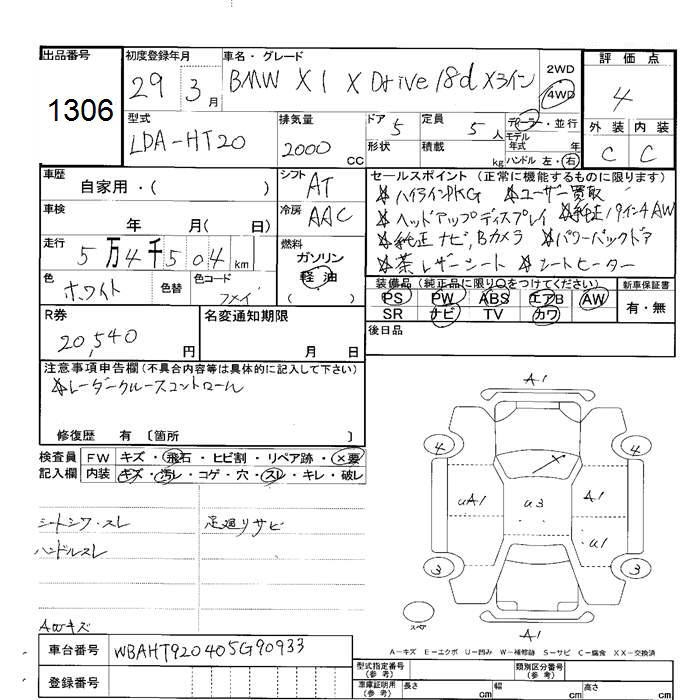 出品番号
1306
初度登録年月
29 3月
車名・グレード
BMW X1 X Drive 18d Xライン
2WD
4WD
評価点
4
外装 内装
C C
型式
LDA-HT20
排気量
2000 CC
ドア 5
形状
定員 5人
積載 kg
ディーラー・並行
モデル
年式 年
ハンドル 左・右
車歴
自家用・( )
シフト
AT
車検
年 月( 日)
冷房
AAC
走行
5万4千504km
燃料
ガソリン
軽油
( )
色
ホワイト
色替
色コード
フメイ
セールスポイント (正常に機能するものに限ります)
ハイラインPKG ユーザー買取
ヘッドアップディスプレイ 純正19インチAW
純正ナビ,Bカメラ パワーバックドア
茶レザーシート シートヒーター
装備品 (純正品に限り○をつけてください)
PS PW ABS エアB AW
SR ナビ TV カワ
新車保証書
有・無
R券
20,540円
名変通知期限
月 日
後日品
注意事項申告欄 (不具合内容等は具体的に記入して下さい)
レーダークルーズコントロール
修復歴 有 〔箇所 〕
検査員 FW キズ・飛石・ヒビ割・リペア跡・×要
記入欄 内装 キズ・汚レ・コゲ・穴・スレ・キレ・破レ
シートシワ・スレ
足廻りサビ
ハンドルスレ
AWキズ
A1
4 4
uA1 u3 A1
u1
3 3
スペア
A1
A-キズ E-エクボ U-凹み W-補修跡 S-サビ C-腐食 XX-交換済
車台番号
WBAHT920405G90933
登録番号
型式指定番号
(参考)
類別区分番号
(参考)
車庫証明用
(参考)
長さ cm
幅 cm
高さ cm